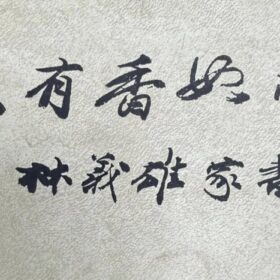 有香如
林義雄家書